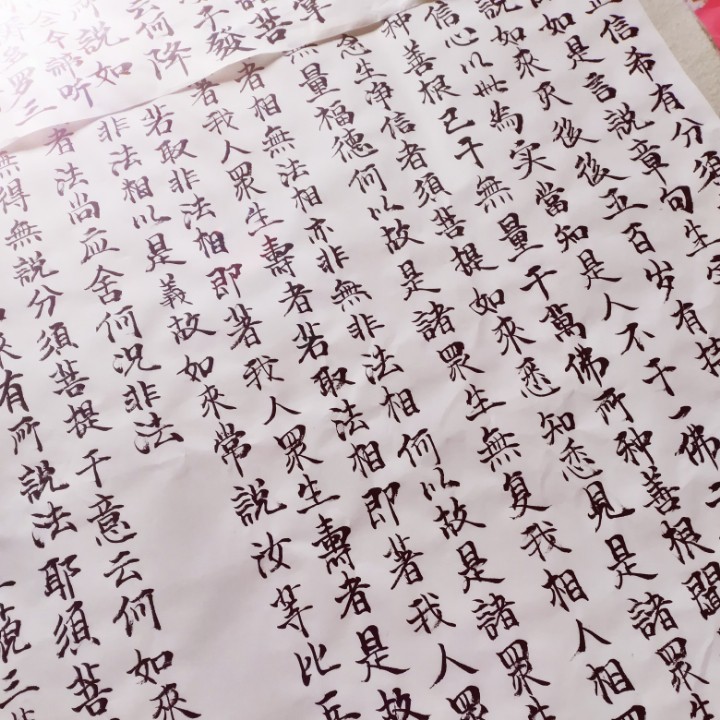 信希有分须
如是言說章句生
說如來灭後後五百岁有持
信心以此為实當知是人不于一佛二
种善根已于無量千萬佛所种善根聞
念生净信者须菩提如來悉知悉見是諸眾生
無量福德何以故是諸眾生無复我相人相
者相無法相亦非無非法相何以故是諸眾生
著我人眾生壽者若取法相即著我人眾
若取非法相即著我人眾生壽者是故
非法相以是義故如來常說汝等比丘
者法尚应舍何况非法
無得無說分须菩提于意云何如來
來有所說法耶须菩
三
掌
子發菩
云何降
說如
今諦听
罗三